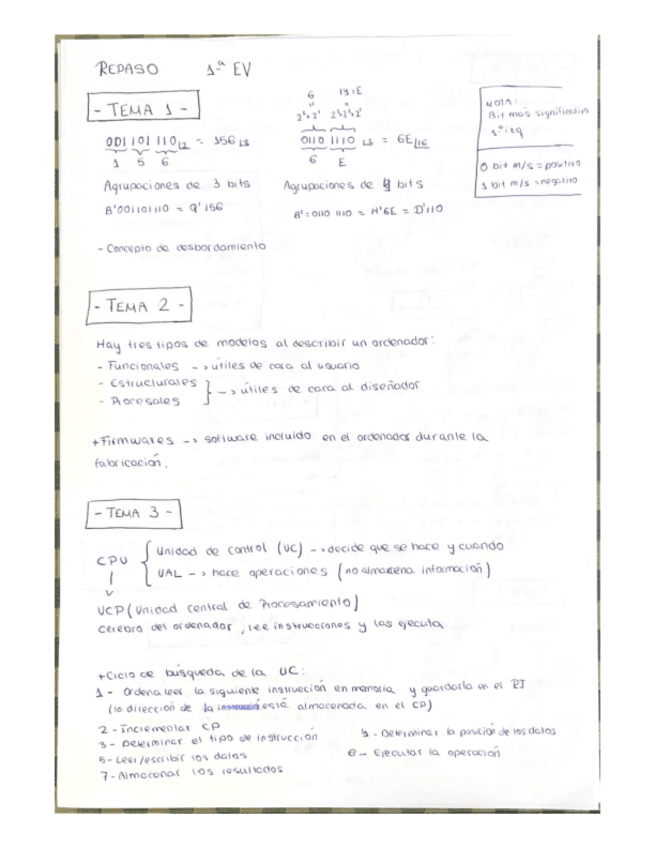 REPASO 1ª EV
- TEMA 1 -
001 101 110 = 156
1 5 6
Agrupaciones de 3 bits
B'001101110 = Q'156
6 14=E
0110 1110 = 6E 16
6 E
Agrupaciones de 4 bits
B'=0110 1110 = H'6E = D'110
NOTA:
Bit más significativo
1º izq
0 bit m/s = positivo
1 bit m/s = negativo
- Concepto de desbordamiento
- TEMA 2 -
Hay tres tipos de modelos al describir un ordenador:
- Funcionales --> útiles de cara al usuario
- Estructurales
- Procesales
--> útiles de cara al diseñador
+ Firmwares --> software incluido en el ordenador durante la
fabricación.
- TEMA 3 -
CPU
Unidad de control (UC) --> decide que se hace y cuando
UAL --> hace operaciones (no almacena información)
UCP (Unidad central de Procesamiento)
cerebro del ordenador, lee instrucciones y las ejecuta
+ Ciclo de búsqueda de la UC:
1 - Ordena leer la siguiente instrucción en memoria y guardarla en el RI
(la dirección de la está almacenada en el CP)
2 - Incrementar CP
3 - Determinar el tipo de instrucción
4 - Determinar la posición de los datos
5 - Leer/escribir los datos
6 - Ejecutar la operación
7 - Almacenar los resultados